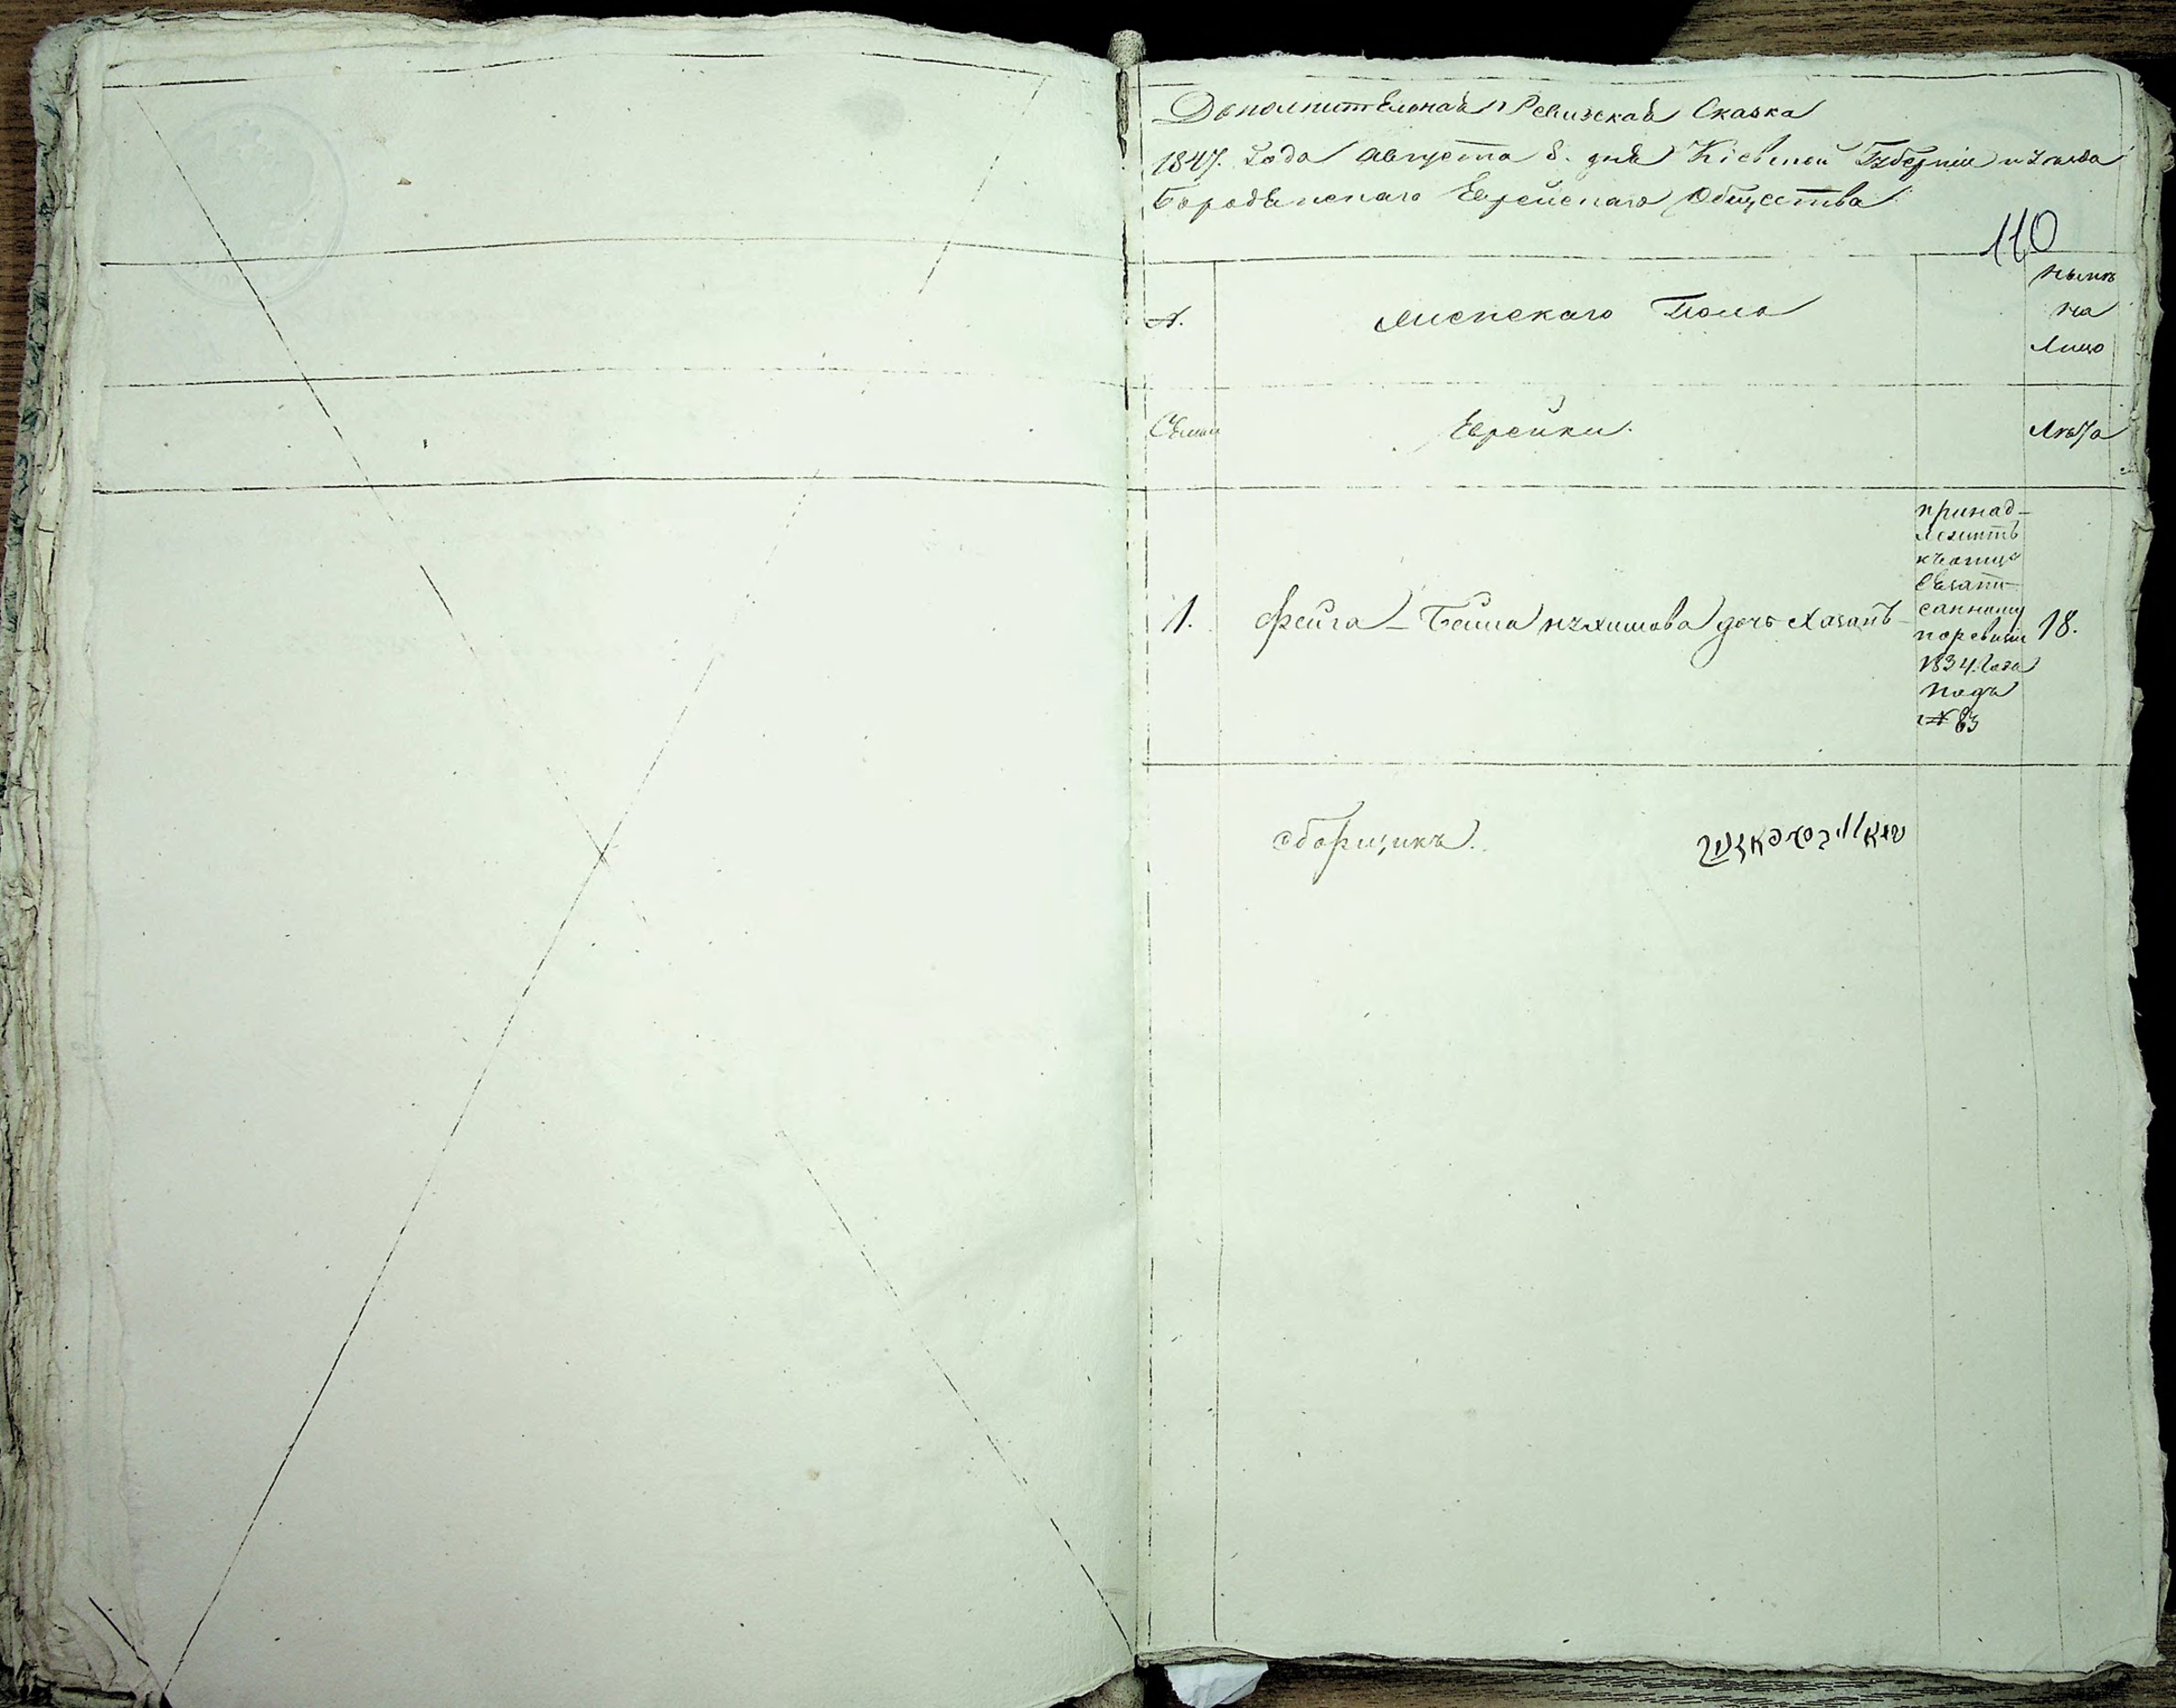 Дополнительная Ревизская Сказка
1847. Года Августа 8. дня Кіевской Губерніи и уѣзда
Бородянскаго Еврейскаго Общества
110
№.
Женскаго Пола
нынѣ
на
Лицо
Семьи
Еврейки.
Лѣта
1.
Фейга-Бейла Нухимова дочь Хазанъ
принад-
лежитъ
къ отцу
запи-
санному
по ревизіи
1834. Года
подъ
№ 83
18.
сборщикъ.